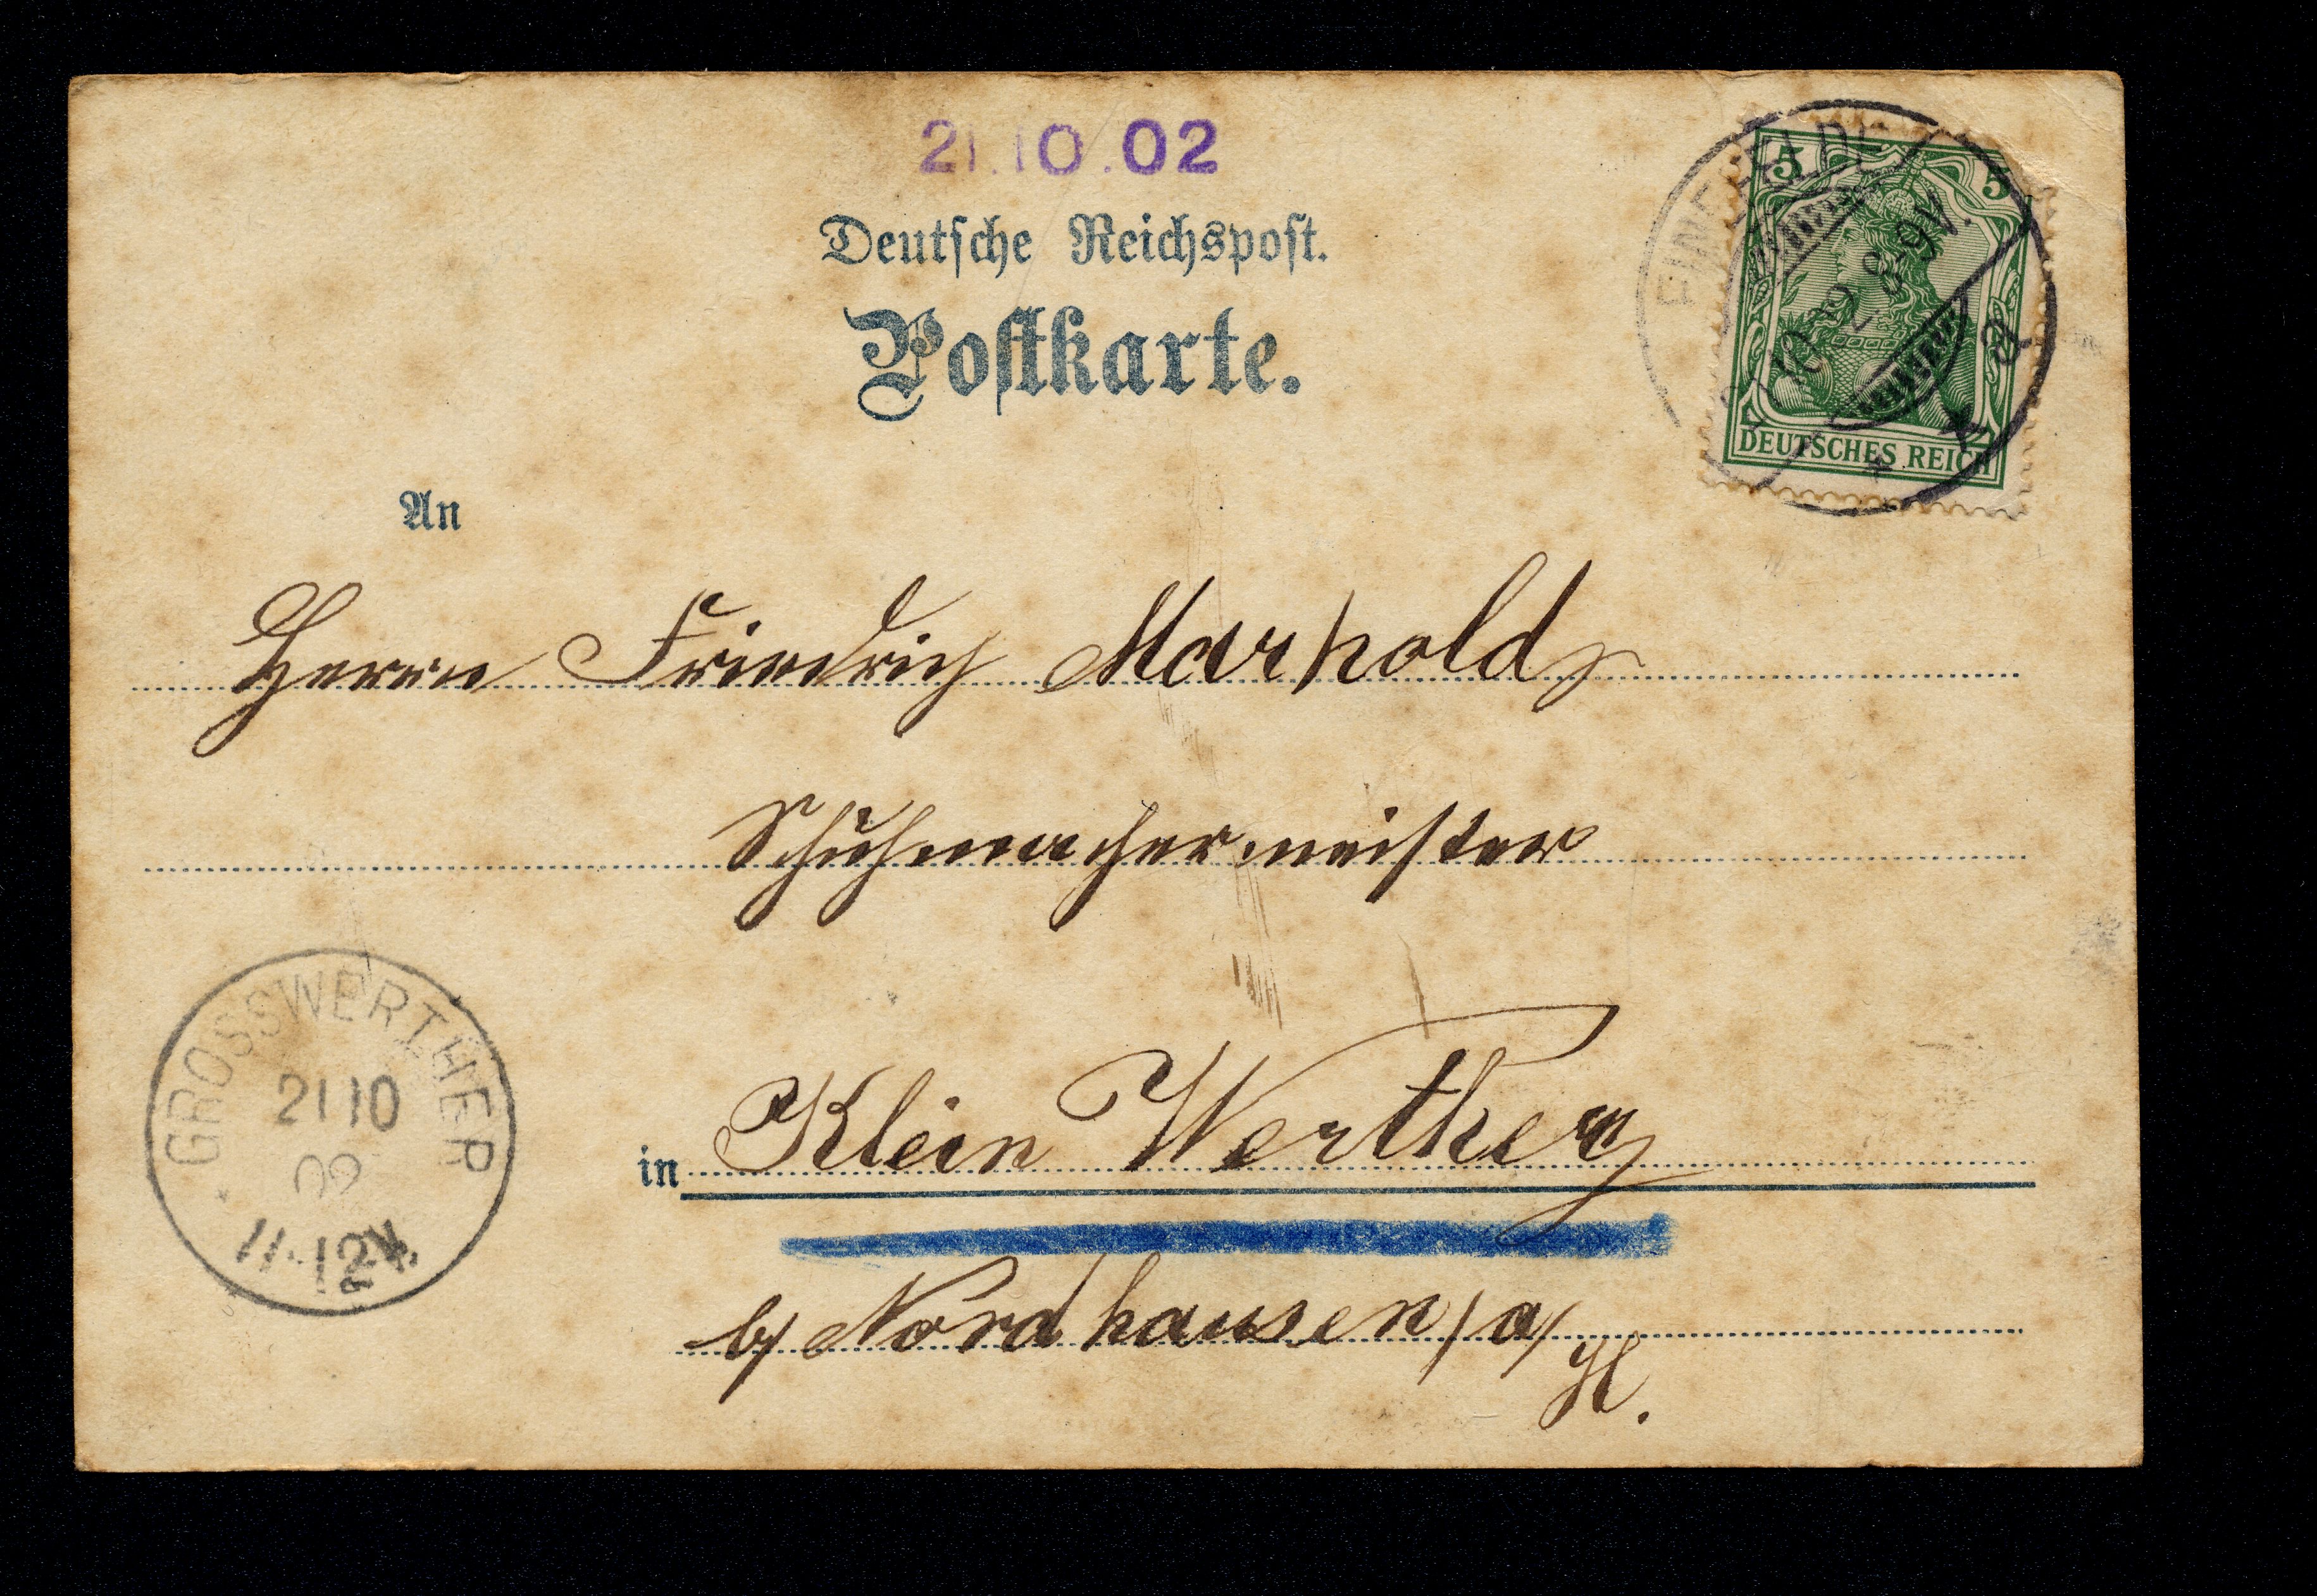 21.10.02
Deutsche Reichspost.
Postkarte.
5 5
8-9V.
DEUTSCHES REICH
An
Herrn Friedrich Marhold
Schuhmachermeister
GROSSWERTHER
21 10
02
11-12V.
in Klein Werther
b/ Nordhausen/a/H.